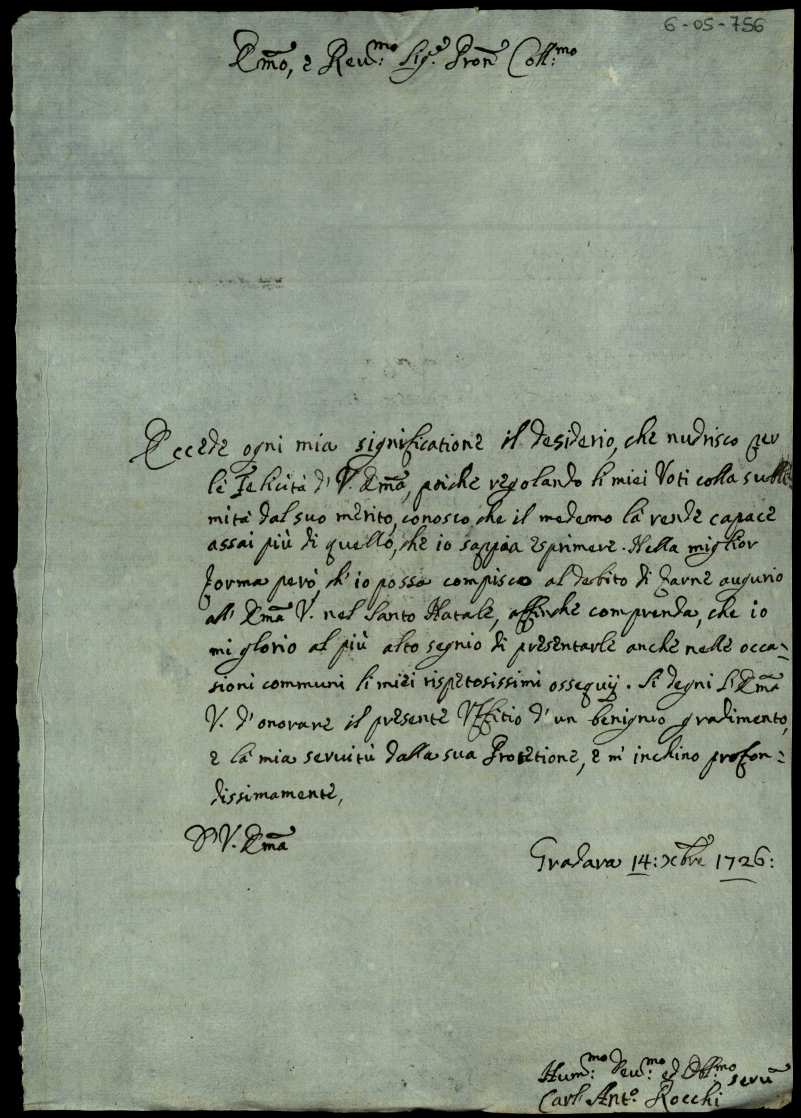 6-05-756
Em̃o, e Reu:mo Sig.e Pron̄ Coll:mo
Eccede ogni mia significatione il desiderio, che nudrisco per
le felicità d' V. Em̃a, poiche regolando li miei Voti colla subli-
mità dal suo merito, conosco, che il medemo la rende capace
assai più di quello, che io sappia esprimere. Nella miglior
forma però, ch' io possa compisco al debito di farne augurio
all' Em̃a V. nel Santo Natale, affinche comprenda, che io
mi glorio al più alto segnio di presentarle anche nelle occa=
sioni communi li miei rispetosissimi ossequij. Si degni L'Em̃a
V. d'onorare il presente Uffitio d'un benignio gradimento,
e la mia seruitù dalla sua Protetione, e m' inchino profon=
dissimamente,
D' V. Em̃a
Gradara 14: Xbre 1726:
Hum:mo Deu:mo ed Obl:mo seru
Carl' Ant.o Rocchi